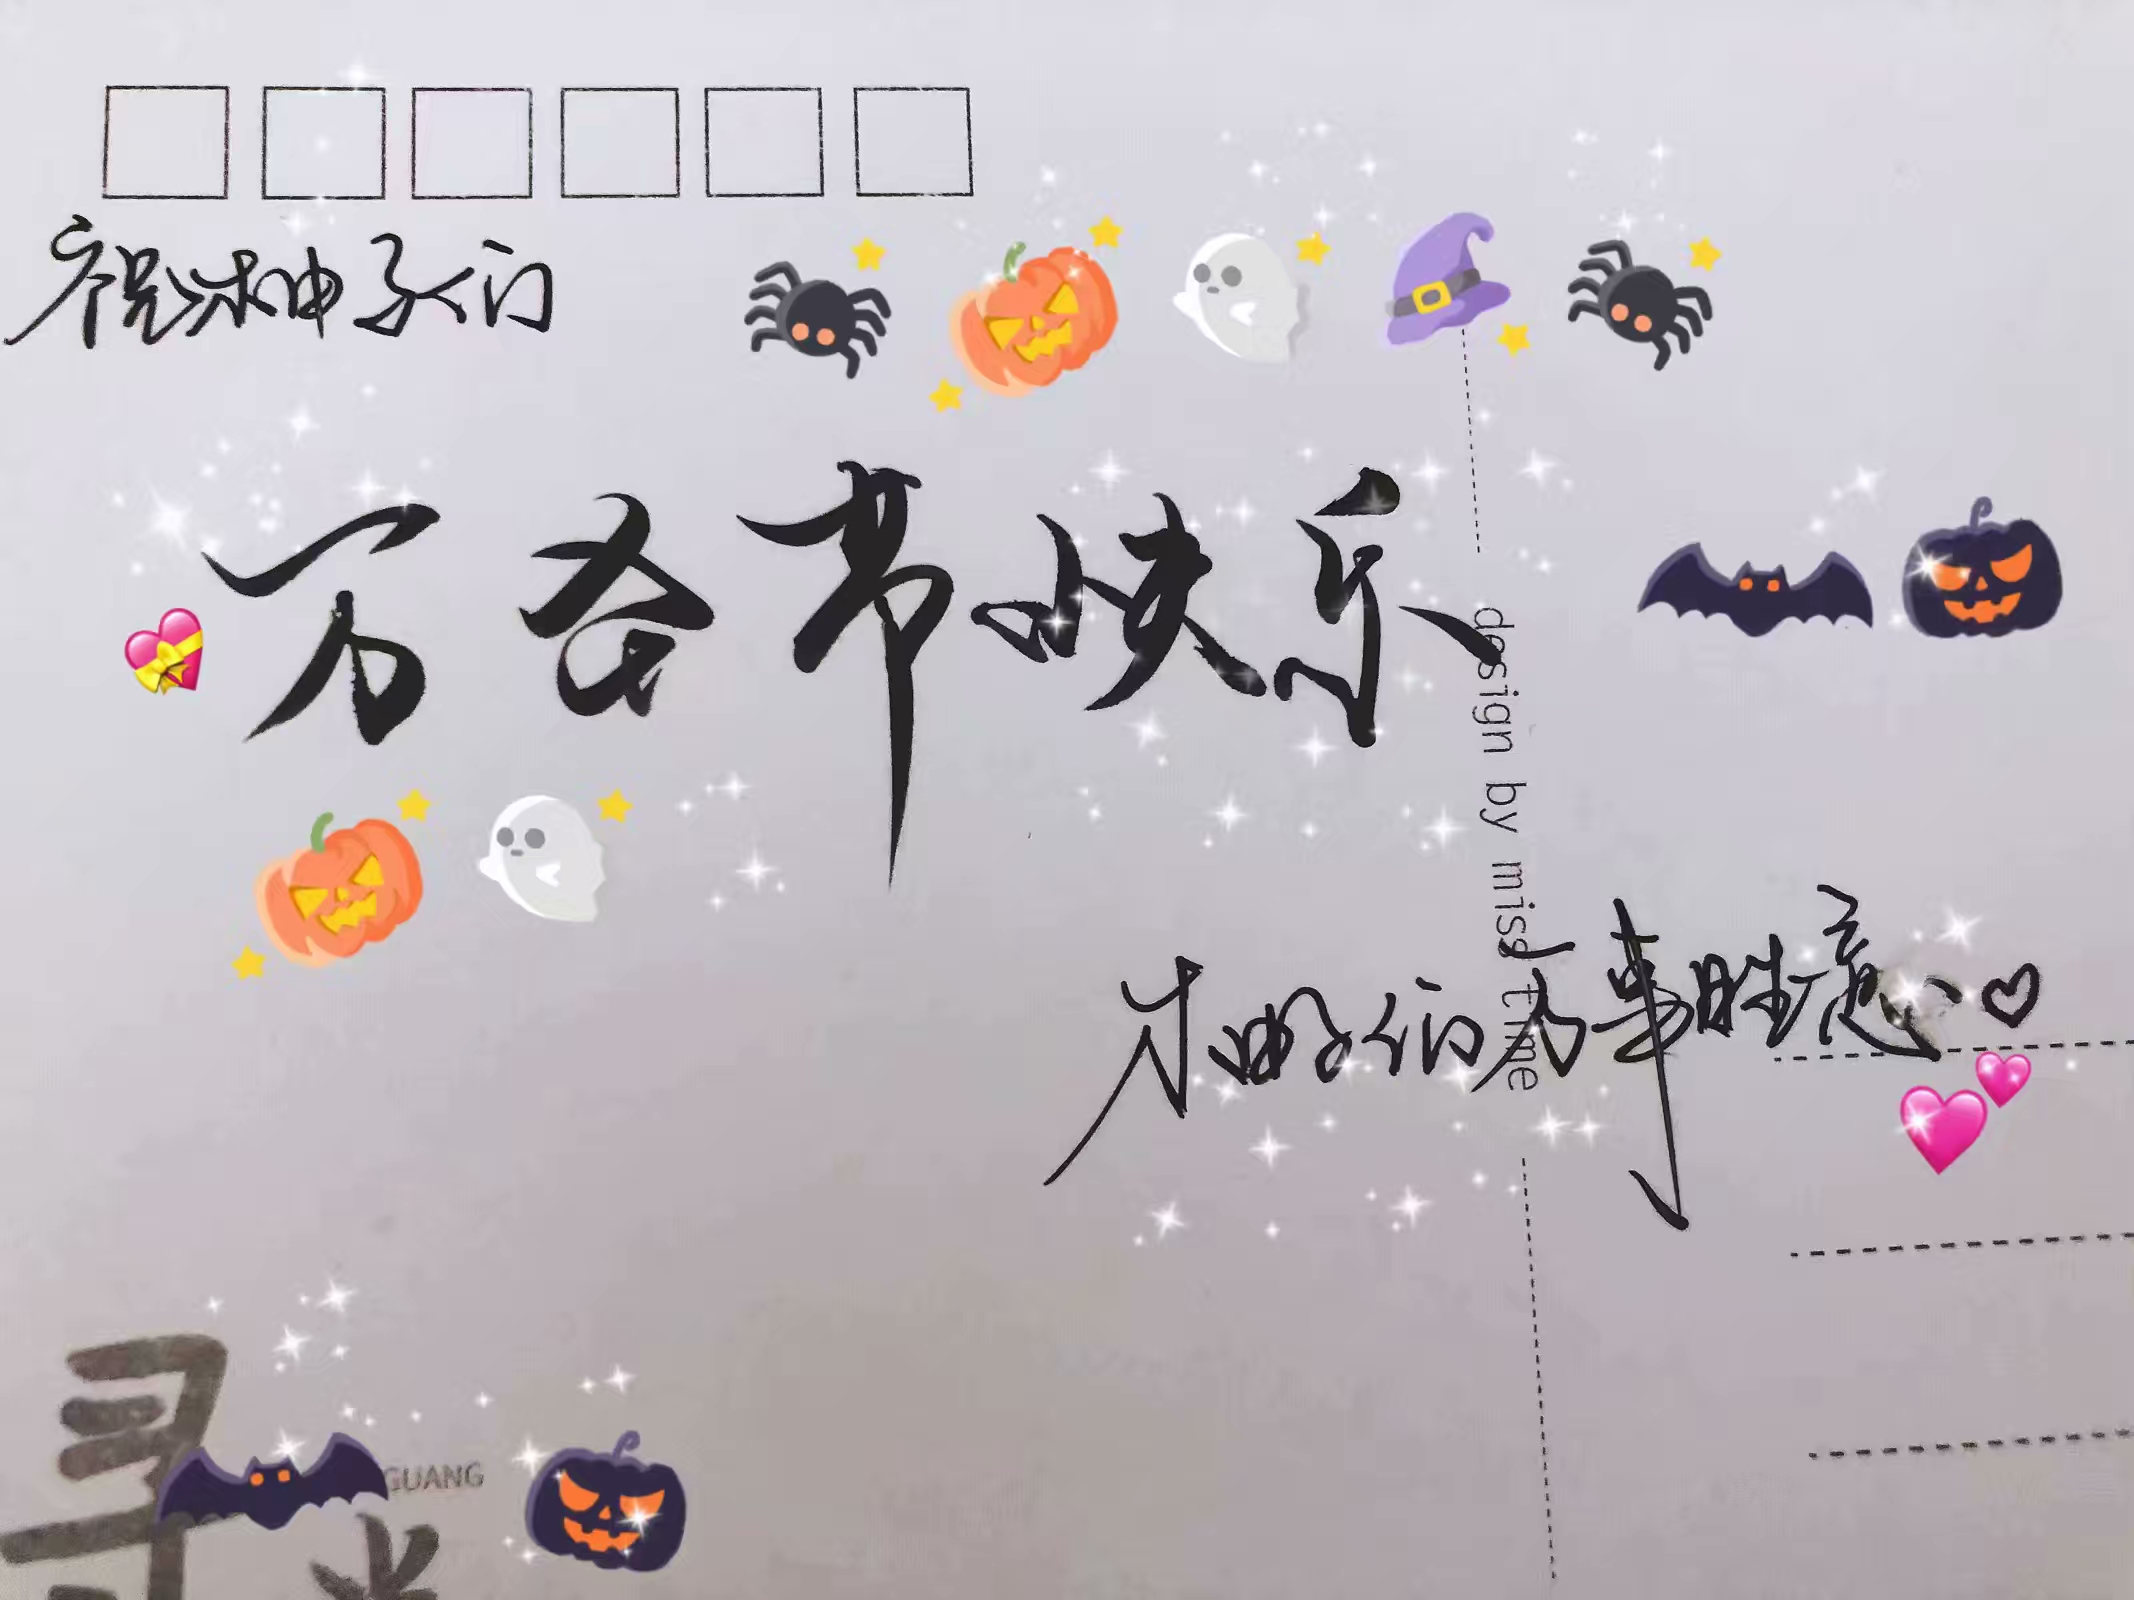 祝柚子们
万圣节快乐
design by miss time
柚子们万事胜意
寻
GUANG
光